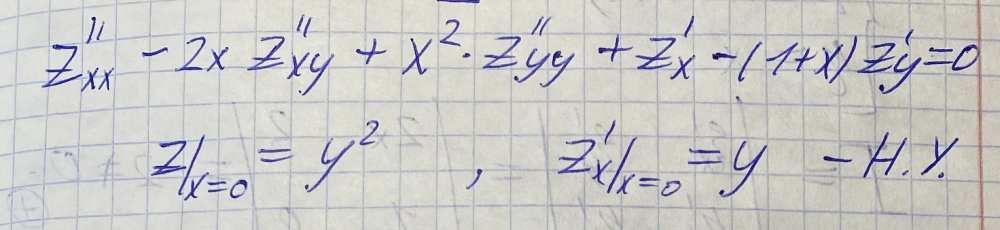 z''xx - 2x z''xy + x² · z''yy + z'x - (1+x) z'y = 0
z/x=0 = y² , z'x/x=0 = y - Н.У.